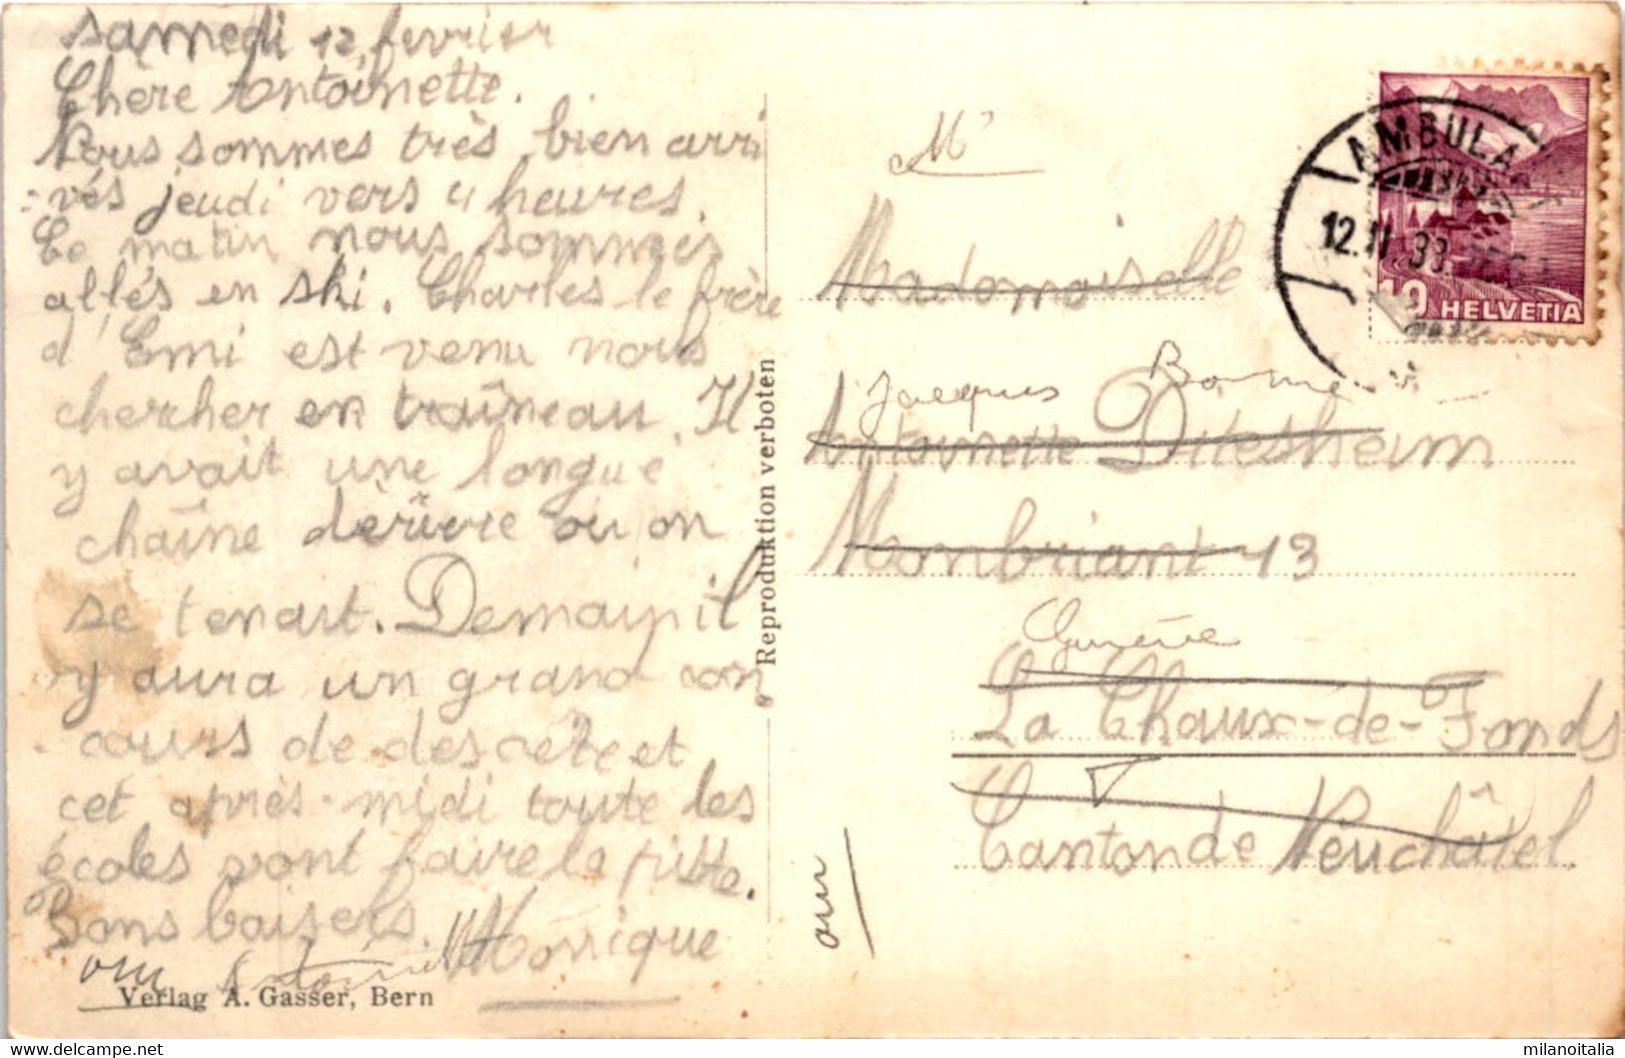 samedi 12 fevrier
Chère Antoinette.
Nous sommes très bien arri
vés jeudi vers 4 heures.
Ce matin nous sommes
allés en ski. Charles le frère
d'Emi est venu nous
chercher en traîneau. Il
y avait une longue
chaîne derière ou on
se tenait. Demain il
y aura un grand con
cours de descète et
cet après-midi toute les
écoles vont faire la pitte.
Bons baisers
Monique
Verlag A. Gasser, Bern
Reproduktion verboten
AMBULA
12.II.38
10 HELVETIA
Mr
Mademoiselle
Jacques
Antoinette Ditesheim
Montbriant 13
Genève
La Chaux-de-Fonds
Canton de Neuchâtel
milanoitalia